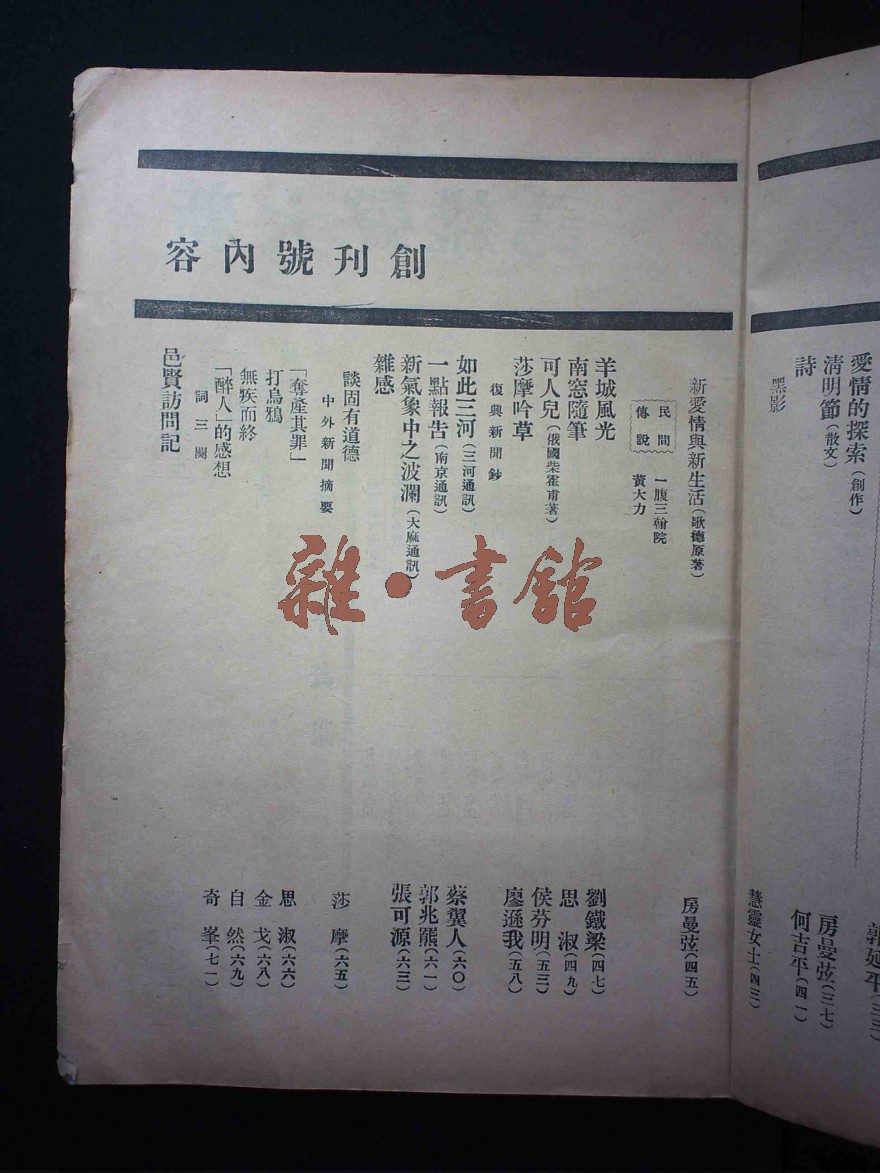 愛情的探索(創作)
郭延平(三三)
清明節(散文)
房曼弦(三七)
詩
何吉平(四一)
黑影
慧靈女士(四三)
創刊號內容
新愛情與新生活(歌德原著)
房曼弦(四五)
民間
傳說
一腹三翰院
黃大力
羊城風光
劉鐵梁(四七)
南窓隨筆
思淑(四九)
可人兒(俄國柴霍甫著)
侯芬明(五三)
莎摩吟草
廖遜我(五八)
復興新聞鈔
如此三河(三河通訊)
蔡翼人(六〇)
一點報告(南京通訊)
郭兆羆(六一)
新氣象中之波瀾(大麻通訊)
張可源(六三)
雜感
談固有道德
莎摩(六五)
中外新聞摘要
「奪產其罪」
思淑(六六)
打烏鴉
金戈(六八)
無疾而終
自然(六九)
「醉人」的感想
奇峯(七一)
詞三闋
邑賢訪問記
雜·書館